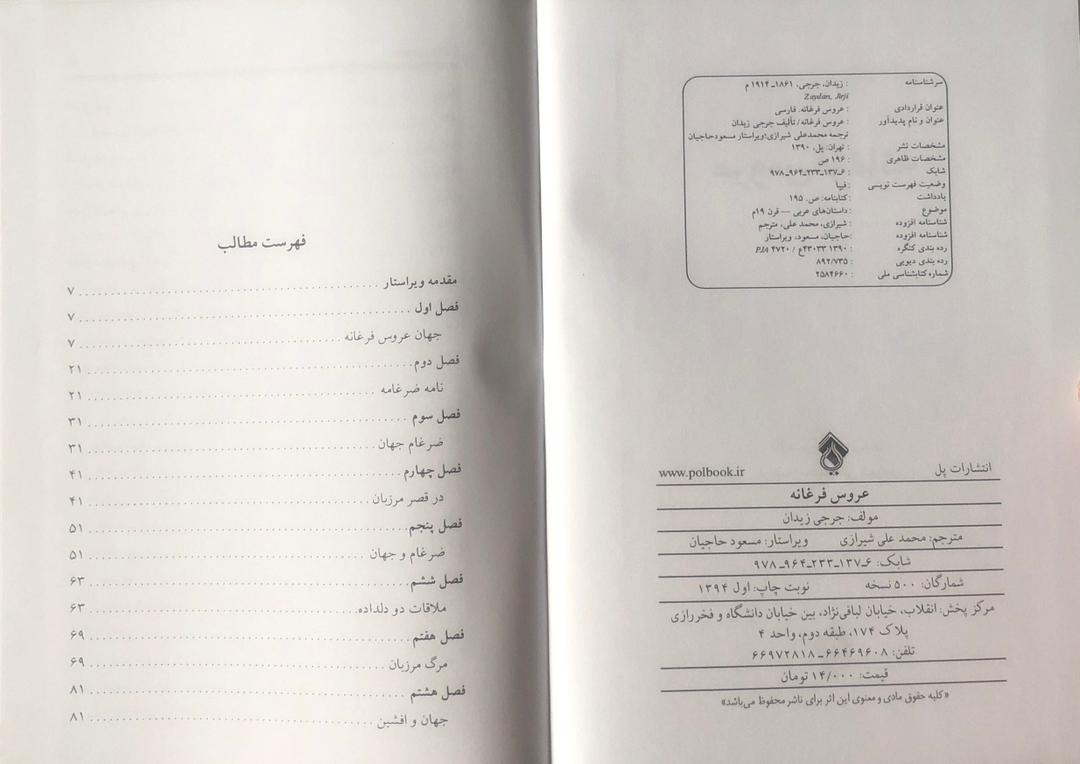 سرشناسنامه : زیدان، جرجی، ۱۸۶۱ـ ۱۹۱۴ م
Zaydan, Jirji
عنوان قراردادی : عروس فرغانه. فارسی
عنوان و نام پدیدآور : عروس فرغانه / تألیف جرجی زیدان
ترجمه محمدعلی شیرازی؛ویراستار مسعودحاجیان
مشخصات نشر : تهران: پل، ۱۳۹۰
مشخصات ظاهری : ۱۹۶ ص
شابک : ۶ـ۱۳۷ـ۲۳۳ـ۹۶۴ـ۹۷۸
وضعیت فهرست نویسی : فیپا
یادداشت : کتابنامه: ص. ۱۹۵
موضوع : داستان‌های عربی — قرن ۱۹م
شناسنامه افزوده : شیرازی، محمد علی، مترجم
شناسنامه افزوده : حاجیان، مسعود، ویراستار
رده بندی کنگره : ۱۳۹۰ ۴۳۰۳۳ع / PJA ۴۷۲۰
رده بندی دیویی : ۸۹۲/۷۳۵
شماره کتابشناسی ملی : ۲۵۸۴۶۶۰
انتشارات پل www.polbook.ir
عروس فرغانه
مولف: جرجی زیدان
مترجم: محمد علی شیرازی ویراستار: مسعود حاجیان
شابک: ۶ـ۱۳۷ـ۲۳۳ـ۹۶۴ـ۹۷۸
شمارگان: ۵۰۰ نسخه نوبت چاپ: اول ۱۳۹۴
مرکز پخش: انقلاب، خیابان لبافی‌نژاد، بین خیابان دانشگاه و فخررازی
پلاک ۱۷۴، طبقه دوم، واحد ۴
تلفن: ۶۶۴۶۹۶۰۸ـ ۶۶۹۷۲۸۱۸
قیمت: ۱۴/۰۰۰ تومان
«کلیه حقوق مادی و معنوی این اثر برای ناشر محفوظ می‌باشد»
فهرست مطالب
مقدمه ویراستار ........ ۷
فصل اول ........ ۷
جهان عروس فرغانه ........ ۷
فصل دوم ........ ۲۱
نامه ضرغامه ........ ۲۱
فصل سوم ........ ۳۱
ضرغام جهان ........ ۳۱
فصل چهارم ........ ۴۱
در قصر مرزبان ........ ۴۱
فصل پنجم ........ ۵۱
ضرغام و جهان ........ ۵۱
فصل ششم ........ ۶۳
ملاقات دو دلداده ........ ۶۳
فصل هفتم ........ ۶۹
مرگ مرزبان ........ ۶۹
فصل هشتم ........ ۸۱
جهان و افشین ........ ۸۱